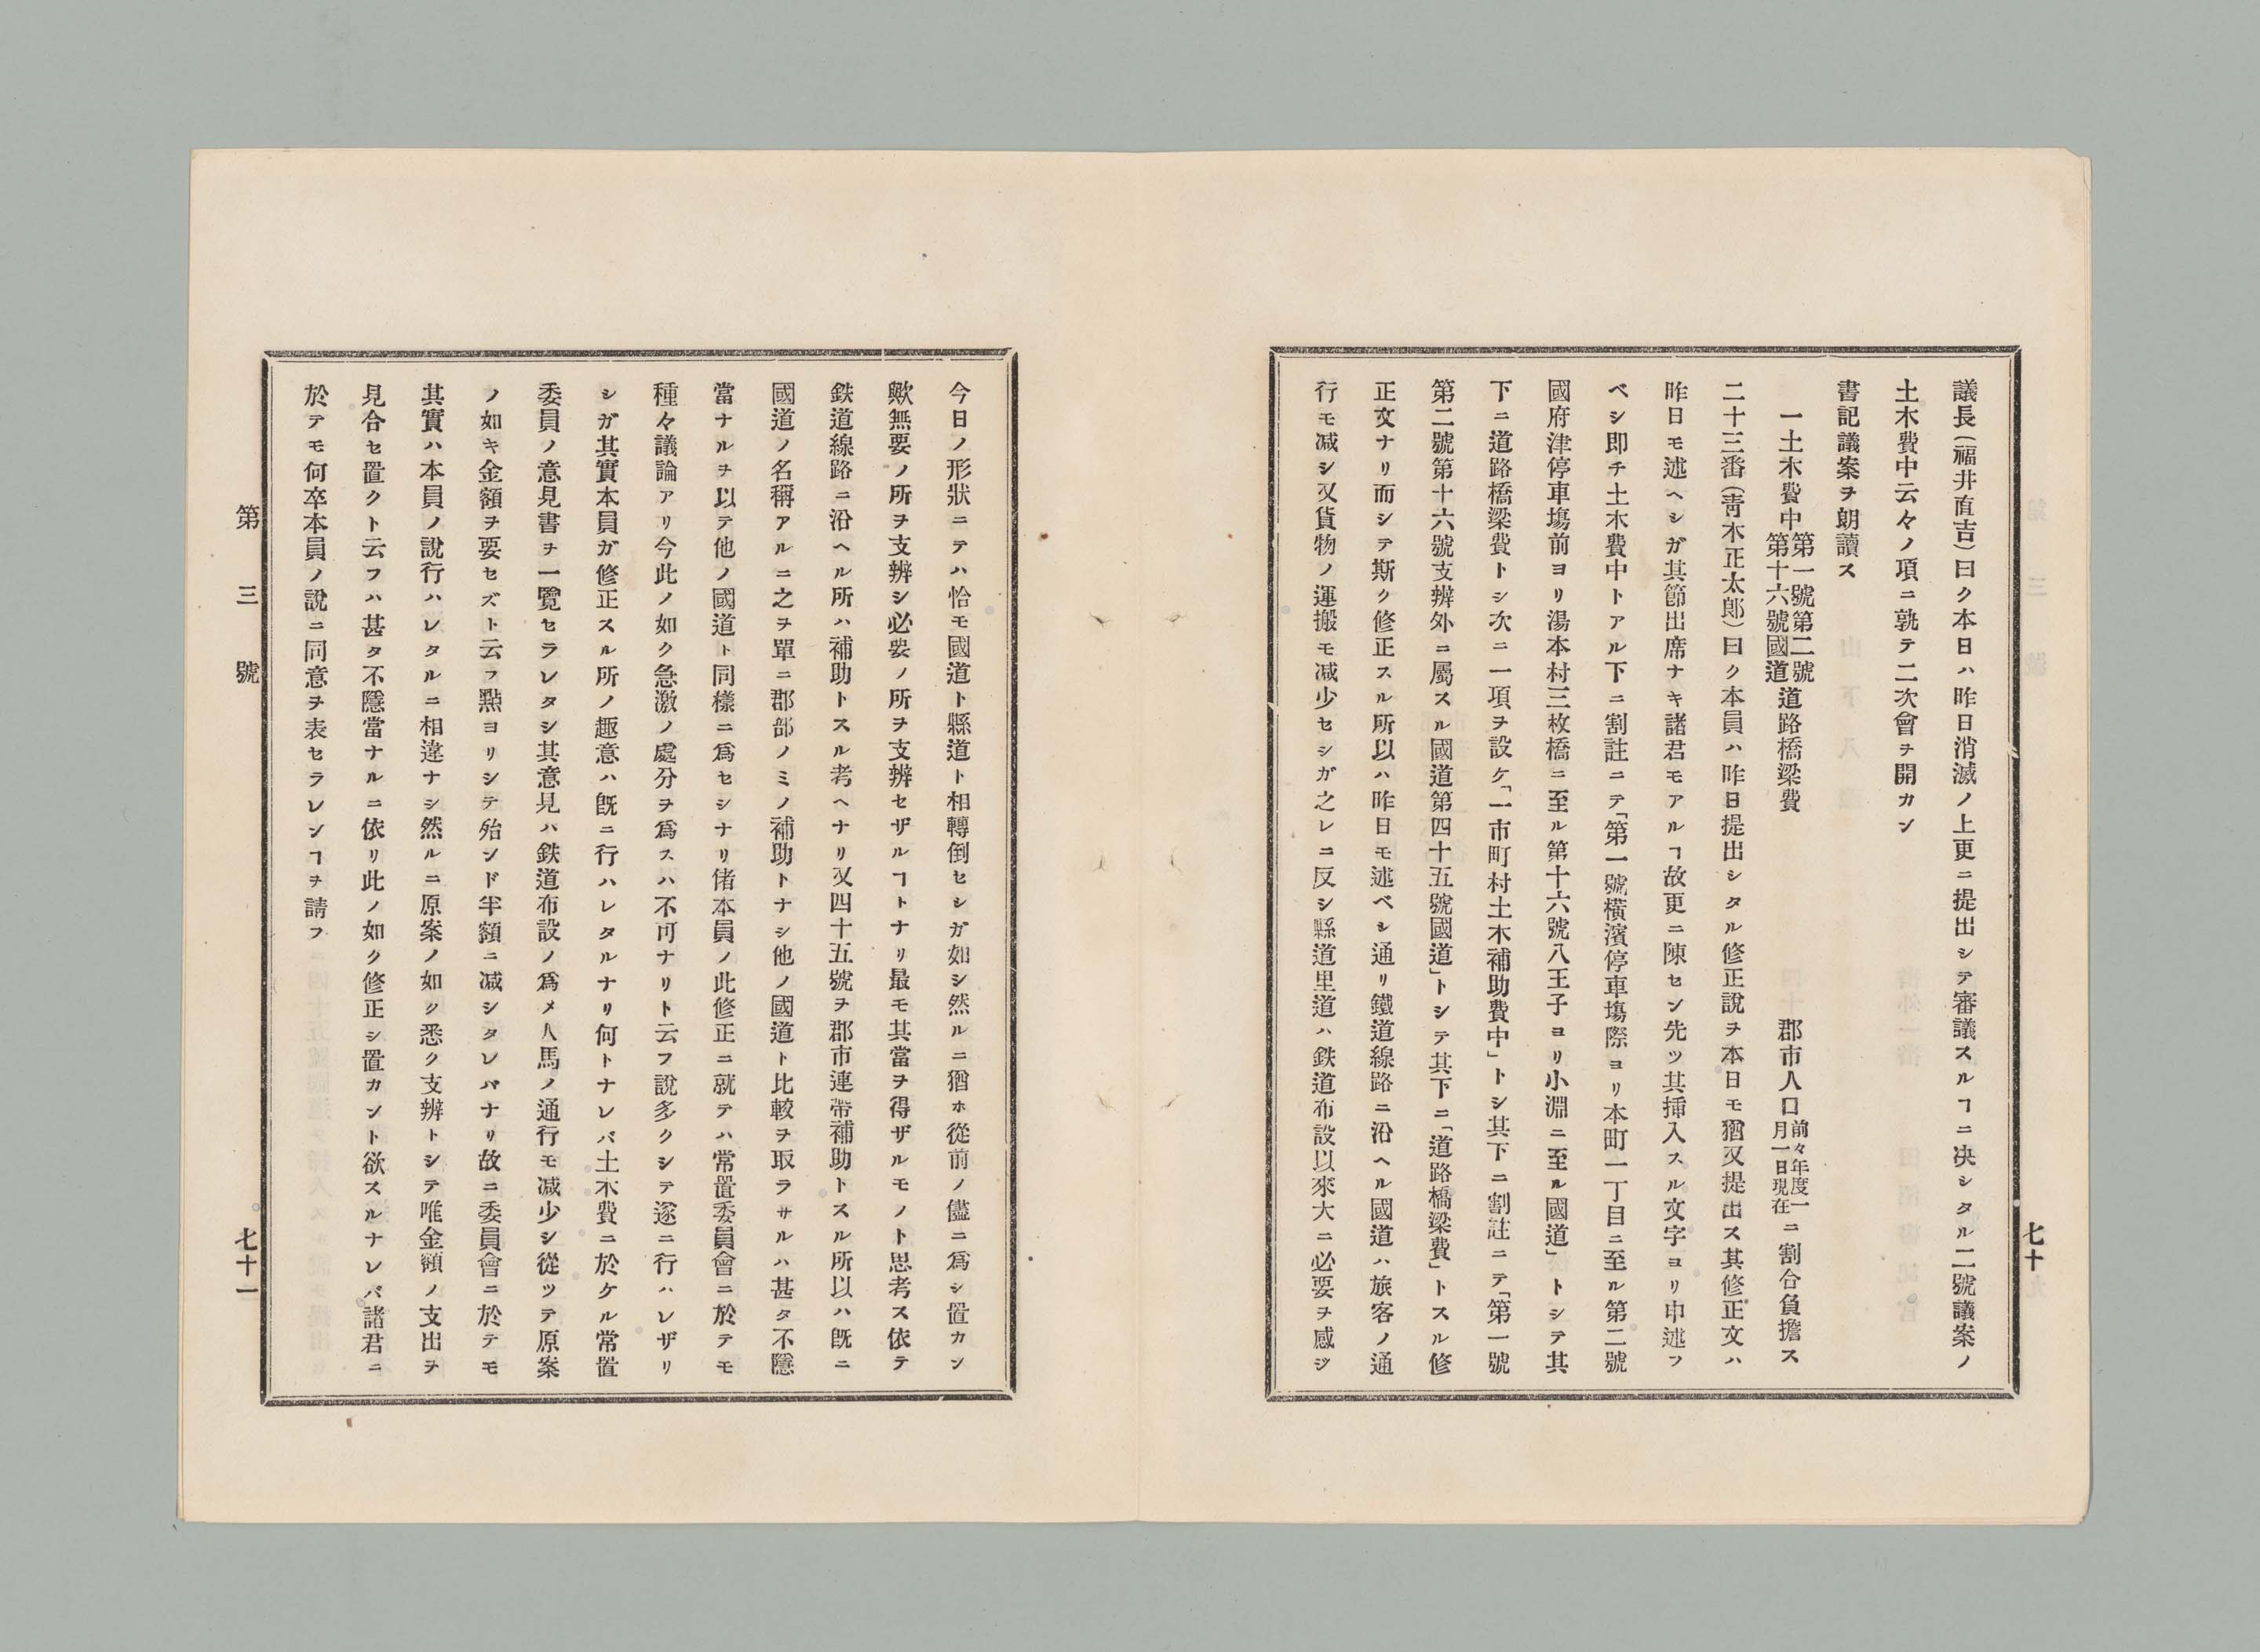 議長（福井直吉）曰ク本日ハ昨日消滅ノ上更ニ提出シテ審議スルヿニ决シタル二號議案ノ
土木費中云々ノ項ニ就テ二次會ヲ開カン
書記議案ヲ朗讀ス
一土木費中第一號第二號第十六號國道道路橋梁費　郡市人口前々年度一月一日現在ニ割合負擔ス
二十三番（靑木正太郎）曰ク本員ハ昨日提出シタル修正說ヲ本日モ猶又提出ス其修正文ハ
昨日モ述ヘシガ其節出席ナキ諸君モアルヿ故更ニ陳セン先ツ其挿入スル文字ヨリ申述フ
ベシ即チ土木費中トアル下ニ割註ニテ「第一號橫濱停車塲際ヨリ本町一丁目ニ至ル第二號
國府津停車塲前ヨリ湯本村三枚橋ニ至ル第十六號八王子ヨリ小淵ニ至ル國道」トシテ其
下ニ道路橋梁費トシ次ニ一項ヲ設ケ「一市町村土木補助費中」トシ其下ニ割註ニテ「第一號
第二號第十六號支辨外ニ屬スル國道第四十五號國道」トシテ其下ニ「道路橋梁費」トスル修
正文ナリ而シテ斯ク修正スル所以ハ昨日モ述ベシ通リ鐵道線路ニ沿ヘル國道ハ旅客ノ通
行モ减シ又貨物ノ運搬モ减少セシガ之レニ反シ縣道里道ハ鉄道布設以來大ニ必要ヲ感ジ
七十
今日ノ形狀ニテハ恰モ國道ト縣道ト相轉倒セシガ如シ然ルニ猶ホ從前ノ儘ニ爲シ置カン
歟無要ノ所ヲ支辨シ必要ノ所ヲ支辨セザルヿトナリ最モ其當ヲ得ザルモノト思考ス依テ
鉄道線路ニ沿ヘル所ハ補助トスル考ヘナリ又四十五號ヲ郡市連帶補助トスル所以ハ旣ニ
國道ノ名稱アルニ之ヲ單ニ郡部ノミノ補助トナシ他ノ國道ト比較ヲ取ラサルハ甚タ不隱
當ナルヲ以テ他ノ國道ト同樣ニ爲セシナリ偖本員ノ此修正ニ就テハ常置委員會ニ於テモ
種々議論アリ今此ノ如ク急激ノ處分ヲ爲スハ不可ナリト云フ說多クシテ遂ニ行ハレザリ
シガ其實本員ガ修正スル所ノ趣意ハ旣ニ行ハレタルナリ何トナレバ土木費ニ於ケル常置
委員ノ意見書ヲ一覽セラレタシ其意見ハ鉄道布設ノ爲メ人馬ノ通行モ减少シ從ツテ原案
ノ如キ金額ヲ要セズト云フ點ヨリシテ殆ンド半額ニ减シタレバナリ故ニ委員會ニ於テモ
其實ハ本員ノ說行ハレタルニ相違ナシ然ルニ原案ノ如ク悉ク支辨トシテ唯金額ノ支出ヲ
見合セ置クト云フハ甚タ不隱當ナルニ依リ此ノ如ク修正シ置カント欲スルナレバ諸君ニ
於テモ何卒本員ノ說ニ同意ヲ表セラレンヿヲ請フ
第三號
七十一